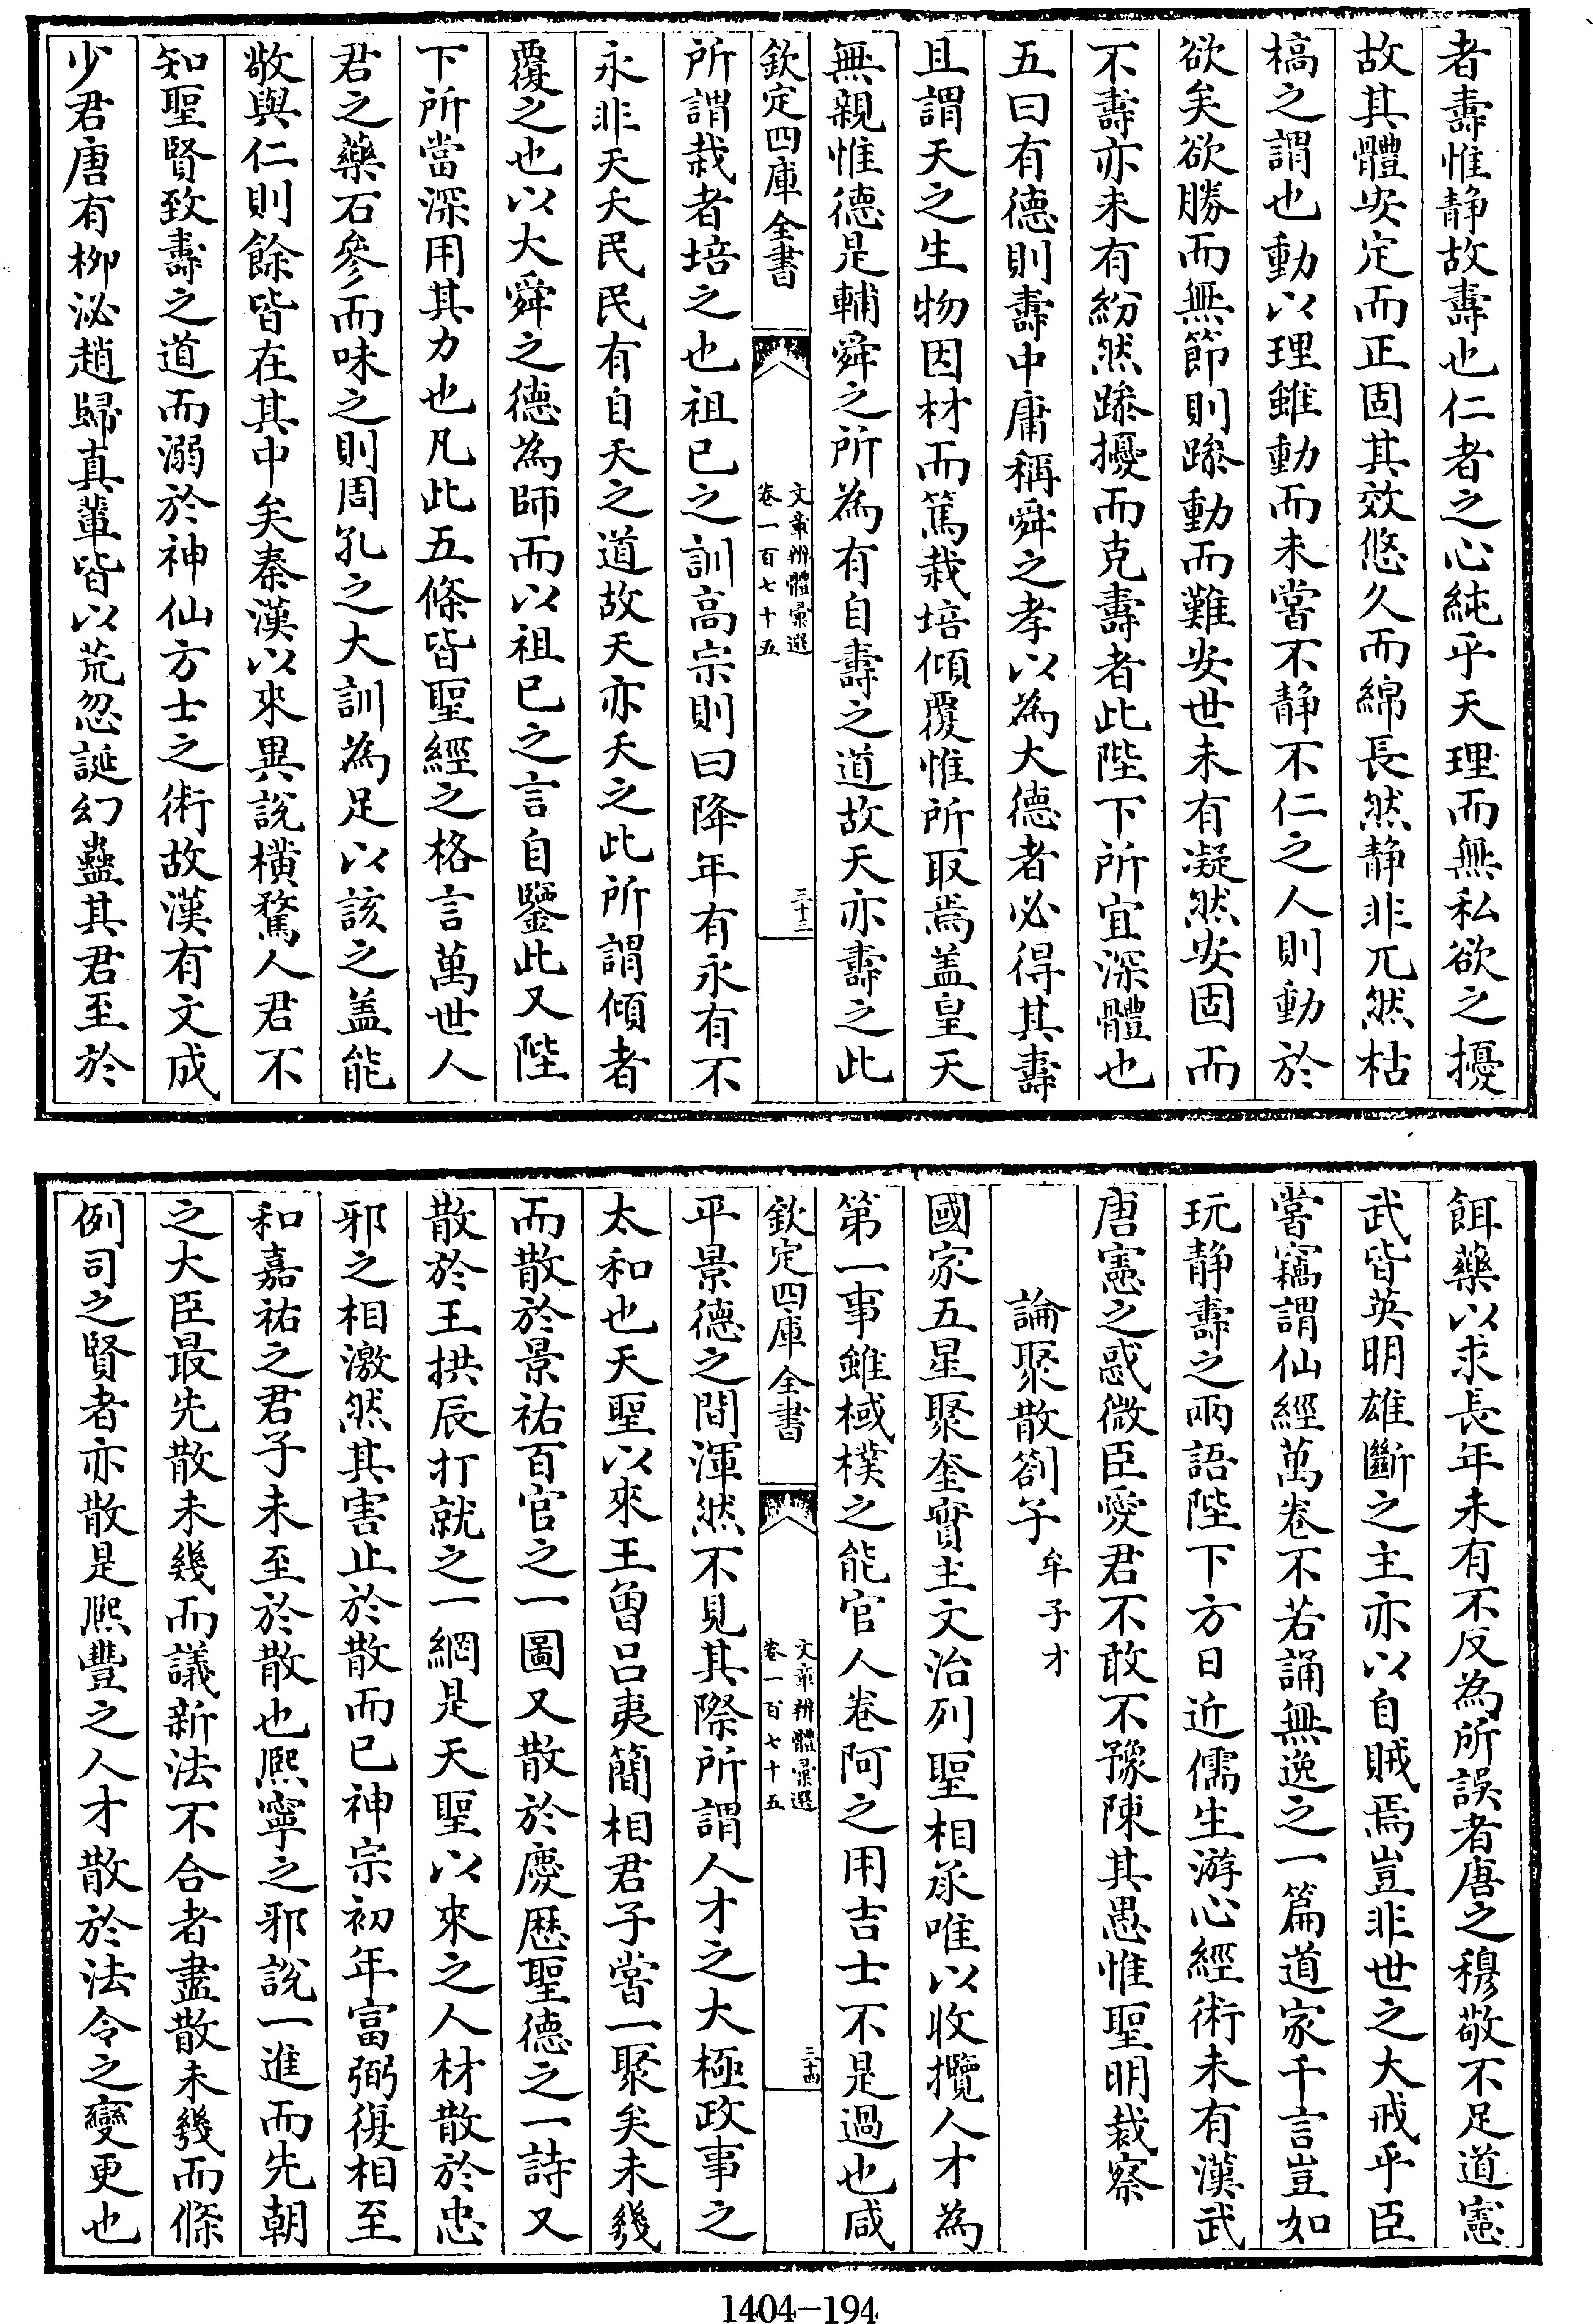 者壽惟静故壽也仁者之心純乎天理而無私欲之擾
故其體安定而正固其效悠久而綿長然静非兀然枯
槁之謂也動以理雖動而未嘗不静不仁之人則動於
欲矣欲勝而無節則躁動而難安世未有凝然安固而
不壽亦未有紛然躁擾而克壽者此陛下所宜深體也
五曰有德則壽中庸稱舜之孝以為大德者必得其壽
且謂天之生物因材而篤栽培傾覆惟所取焉盖皇天
無親惟德是輔舜之所為有自壽之道故天亦壽之此
欽定四庫全書
文章辨體彙選
卷一百七十五
三十三
所謂栽者培之也祖已之訓高宗則曰降年有永有不
永非天夭民民有自夭之道故天亦夭之此所謂傾者
覆之也以大舜之德為師而以祖已之言自鑒此又陛
下所當深用其力也凡此五條皆聖經之格言萬世人
君之藥石參而味之則周孔之大訓為足以該之盖能
敬與仁則餘皆在其中矣秦漢以來異說橫騖人君不
知聖賢致壽之道而溺於神仙方士之術故漢有文成
少君唐有柳泌趙歸真輩皆以荒忽誕幻蠱其君至於
餌藥以求長年未有不反為所誤者唐之穆敬不足道憲
武皆英明雄斷之主亦以自賊焉豈非世之大戒乎臣
嘗竊謂仙經萬卷不若誦無逸之一篇道家千言豈如
玩静壽之兩語陛下方日近儒生游心經術未有漢武
唐憲之惑微臣愛君不敢不豫陳其愚惟聖明裁察
論聚散劄子 牟子才
國家五星聚奎實主文治列聖相承唯以收攬人才為
第一事雖棫樸之能官人卷阿之用吉士不是過也咸
欽定四庫全書
文章辨體彙選
卷一百七十五
三十四
平景德之間渾然不見其際所謂人才之大極政事之
太和也天聖以來王曾吕夷簡相君子嘗一聚矣未幾
而散於景祐百官之一圖又散於慶歷聖德之一詩又
散於王拱辰打就之一網是天聖以來之人材散於忠
邪之相激然其害止於散而已神宗初年富弼復相至
和嘉祐之君子未至於散也熙寧之邪說一進而先朝
之大臣最先散未幾而議新法不合者盡散未幾而條
例司之賢者亦散是熙豐之人才散於法令之變更也
1404-194